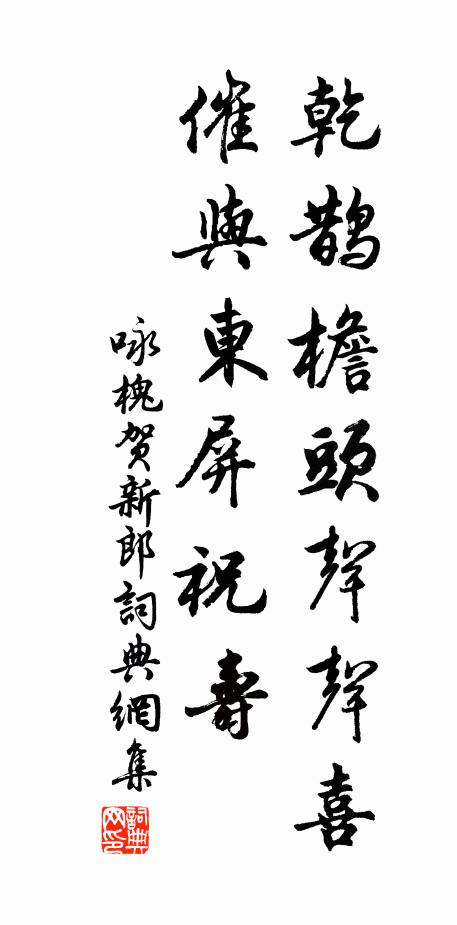 乾鵲檐頭聲聲喜
催與東屏祝壽
咏槐賀新郎詞典網集
詞典网印